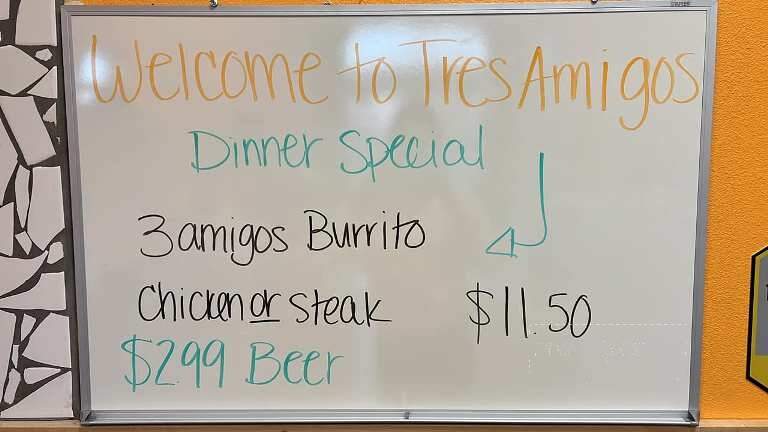 Welcome to Tres Amigos
Dinner Special
3 amigos Burrito
Chicken or Steak $11.50
$2.99 Beer